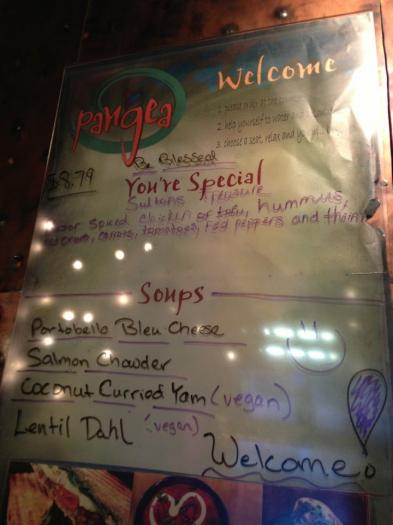 pangea
Welcome
1. please order at the counter
2. help yourself to water and
3. choose a seat, relax and
Be Blessed
$8.79
You're Special
Sultans Treasure
spiced chicken or tofu, hummus,
carrots, tomatoes, red peppers and
Soups
Portobello Bleu Cheese
Salmon Chowder
Coconut Curried Yam (vegan)
Lentil Dahl (vegan)
Welcome